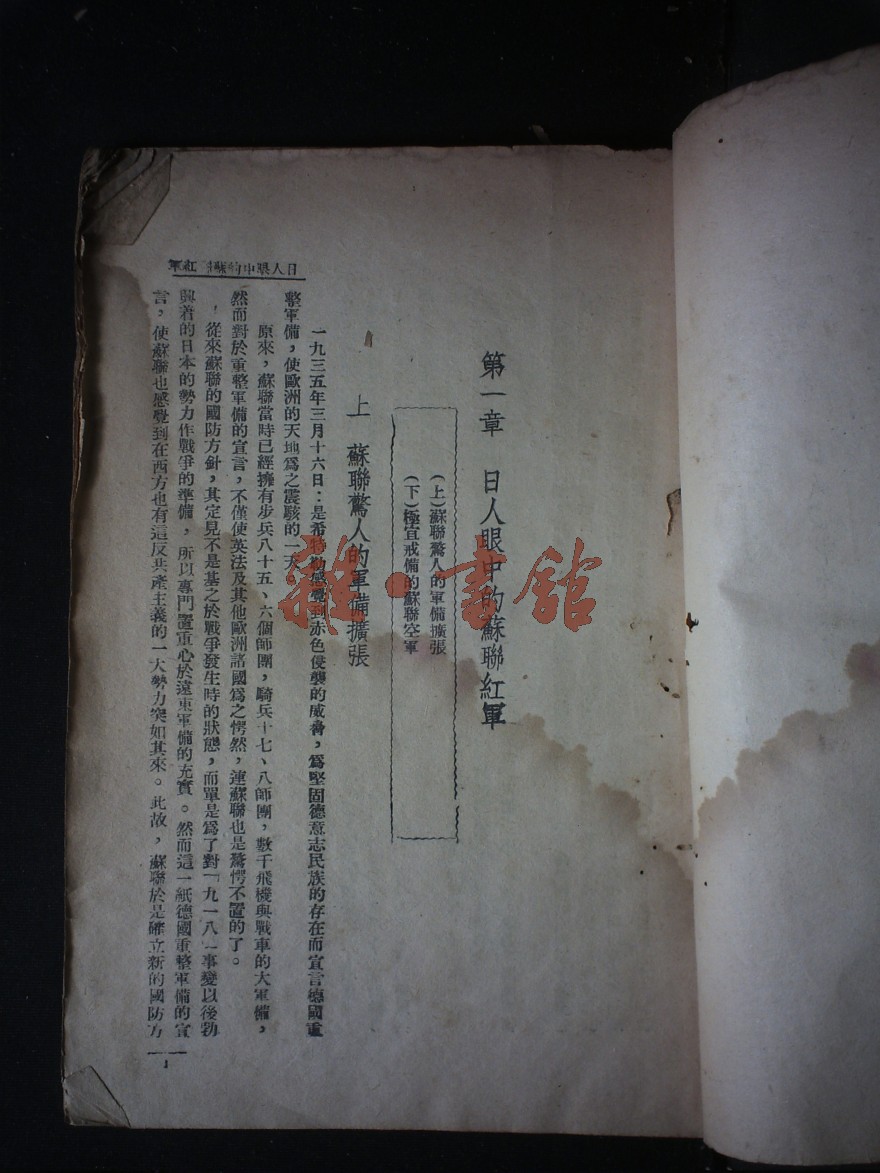 第一章　日人眼中的蘇聯紅軍
(上)蘇聯驚人的軍備擴張
(下)極宣戒備的蘇聯空軍
上　蘇聯驚人的軍備擴張
一九三五年三月十六日：是希特勒感覺到赤色侵襲的威脅，爲堅固德意志民族的存在而宣言德國重
整軍備，使歐洲的天地爲之震駭的一天。
原來，蘇聯當時已經擁有步兵八十五、六個師團，騎兵十七、八師團，數千飛機與戰車的大軍備，
然而對於重整軍備的宣言，不僅使英法及其他歐洲諸國爲之愕然，連蘇聯也是驚愕不置的了。
從來蘇聯的國防方針，其定見不是基之於戰爭發生時的狀態，而單是爲了對「九一八」事變以後勃
興着的日本的勢力作戰爭的準備，所以專門置重心於遠東軍備的充實。然而這一紙德國重整軍備的宣
言，使蘇聯也感覺到在西方也有這反共產主義的一大勢力突如其來。此故，蘇聯於是確立新的國防方
日人眼中的蘇聯紅軍
1
雜·書館